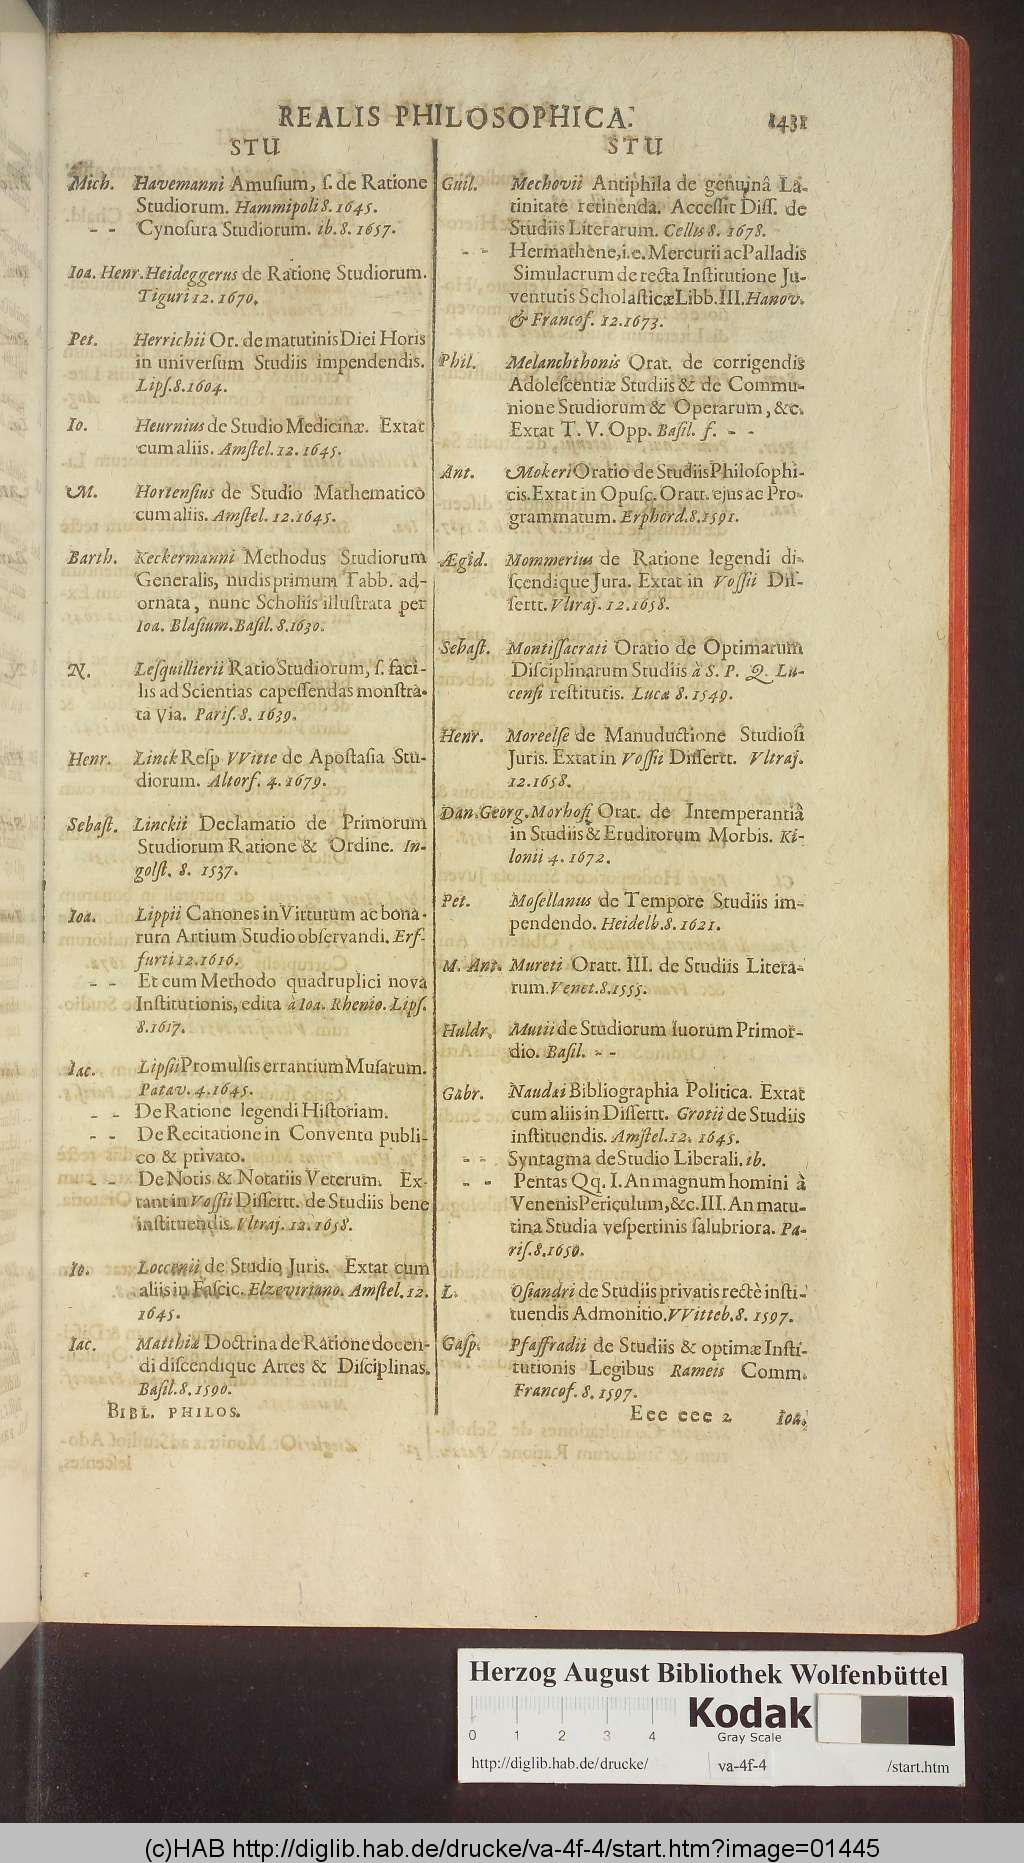 REALIS PHILOSOPHICA.
1431
STU
Mich. Havemanni Amusium, s. de Ratione
Studiorum. Hammipoli 8. 1645.
- - Cynosura Studiorum. ib. 8. 1657.
Ioa. Henr. Heideggerus de Ratione Studiorum.
Tiguri 12. 1670.
Pet. Herrichii Or. de matutinis Diei Horis
in universum Studiis impendendis.
Lips. 8. 1604.
Io. Heurnius de Studio Medicinæ. Extat
cum aliis. Amstel. 12. 1645.
M. Hortensius de Studio Mathematico
cum aliis. Amstel. 12. 1645.
Barth. Keckermanni Methodus Studiorum
Generalis, nudis primum Tabb. ad-
ornata, nunc Scholiis illustrata per
Ioa. Blasium. Basil. 8. 1630.
N. Lesquillierii Ratio Studiorum, s. faci-
lis ad Scientias capessendas monstra-
ta Via. Paris. 8. 1639.
Henr. Linck Resp VVitte de Apostasia Stu-
diorum. Altorf. 4. 1679.
Sebast. Linckii Declamatio de Primorum
Studiorum Ratione & Ordine. In-
golst. 8. 1537.
Ioa. Lippii Canones in Virtutum ac bona-
rum Artium Studio observandi. Erf-
furti 12. 1616.
- - Et cum Methodo quadruplici nova
Institutionis, edita à Ioa. Rhenio. Lips.
8. 1617.
Iac. Lipsii Promulsis errantium Musarum.
Patav. 4. 1645.
- - De Ratione legendi Historiam.
- - De Recitatione in Conventu publi-
co & privato.
- - De Notis & Notariis Veterum. Ex-
tant in Vossii Dissertt. de Studiis bene
instituendis. Vltraj. 12. 1658.
Io. Loccenii de Studio Juris. Extat cum
aliis in Fascic. Elzeviriano. Amstel. 12.
1645.
Iac. Matthiæ Doctrina de Ratione docen-
di discendique Artes & Disciplinas.
Basil. 8. 1590.
BIBL. PHILOS.
STU
Guil. Mechovii Antiphila de genuinâ La-
tinitate retinenda. Accessit Diss. de
Studiis Literarum. Cellis 8. 1678.
- - Hermathene, i. e. Mercurii ac Palladis
Simulacrum de recta Institutione Ju-
ventutis Scholasticæ Libb. III. Hanov.
& Francof. 12. 1673.
Phil. Melanchthonis Orat. de corrigendis
Adolescentiæ Studiis & de Commu-
nione Studiorum & Operarum, &c.
Extat T. V. Opp. Basil. f. - -
Ant. Mokeri Oratio de Studiis Philosophi-
cis. Extat in Opusc. Oratt. ejus ac Pro-
grammatum. Erphord. 8. 1591.
Ægid. Mommerius de Ratione legendi di-
scendique Jura. Extat in Vossii Dis-
sertt. Vltraj. 12. 1658.
Sebast. Montissacrati Oratio de Optimarum
Disciplinarum Studiis à S. P. Q. Lu-
censi restitutis. Lucæ 8. 1549.
Henr. Moreelse de Manuductione Studiosi
Juris. Extat in Vossii Dissertt. Vltraj.
12. 1658.
Dan. Georg. Morhofi Orat. de Intemperantiâ
in Studiis & Eruditorum Morbis. Ki-
lonii 4. 1672.
Pet. Mosellanus de Tempore Studiis im-
pendendo. Heidelb. 8. 1621.
M. Ant. Mureti Oratt. III. de Studiis Litera-
rum. Venet. 8. 1555.
Huldr. Mutii de Studiorum suorum Primor-
dio. Basil. - -
Gabr. Naudæi Bibliographia Politica. Extat
cum aliis in Dissertt. Grotii de Studiis
instituendis. Amstel. 12. 1645.
- - Syntagma de Studio Liberali. ib.
- - Pentas Qq. I. An magnum homini à
Venenis Periculum, &c. III. An matu-
tina Studia vespertinis salubriora. Pa-
ris. 8. 1650.
L. Osiandri de Studiis privatis rectè insti-
tuendis Admonitio. VVitteb. 8. 1597.
Gasp. Pfaffradii de Studiis & optimæ Insti-
tutionis Legibus Rameis Comm.
Francof. 8. 1597.
Eee eee 2
Ioa.
Herzog August Bibliothek Wolfenbüttel
0 1 2 3 4
Kodak
Gray Scale
http://diglib.hab.de/drucke/ va-4f-4 /start.htm
(c)HAB http://diglib.hab.de/drucke/va-4f-4/start.htm?image=01445